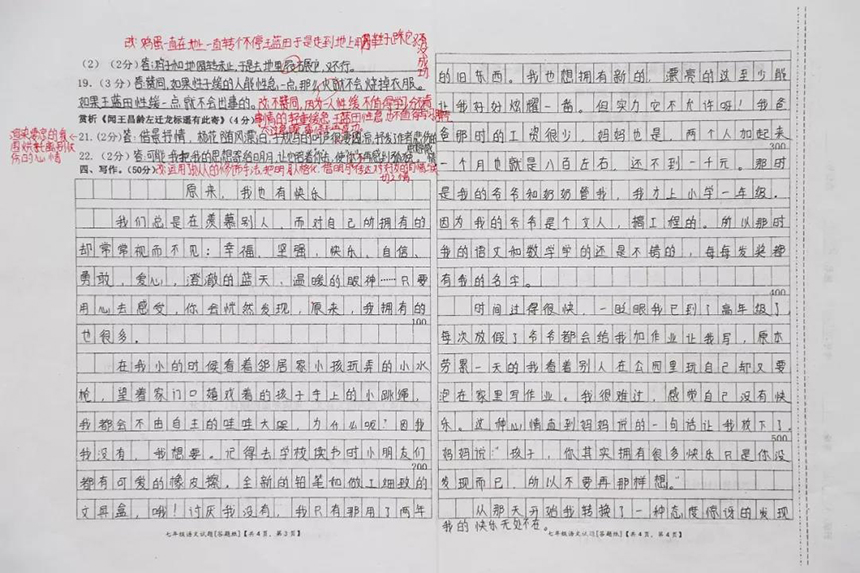 改：鸡蛋一直在地上一直转个不停王蓝田于是走到地上用
（2）（2分）答：鸡子如地圆转未止，于是去地里
19.（3分）答赞同，如果性子缓的人能性急一点，那么他就不会烧掉衣服。
如果王蓝田性缓一点，就不会出事的。改不赞同，因为人性缓不值得学习
赏析《闻王昌龄左迁龙标遥有此寄》（4分）
21.（2分）答：借景抒情，杨花随风漂泊，子规鸟的叫声很凄
22.（2分）答：可能，我把我的思想寄给明月，让他
四、写作。（50分）改：运用
原来，我也有快乐
我们总是在羡慕别人，而对自己所拥有的
却常常视而不见：幸福、坚强、快乐、自信、
勇敢，爱心，澄澈的蓝天，温暖的眼神……只要
用心去感受，你会恍然发现，原来，我拥有的
100
也很多。
在我小的时候看着邻居家小孩玩弄的小水
枪，望着家门口嬉戏着的孩子手上的小跳绳，
我都会不由自主的哇哇大哭，为什么呢？因我
我没有，我想要。记得去学校读书时小朋友们
200
都有可爱的橡皮擦，全新的铅笔和做工细致的
文具盒，哦！讨厌我没有，我只有那用了两年
七年级语文试题[答题纸]【共4页，第3页】
的旧东西。我也想拥有新的、漂亮的这至少能
让我好好炫耀一番。但实力它不允许呀！我爸
爸那时的工资很少，妈妈也是，两个人加起来
300
一个月也就是八百左右，还不到一千元。那时
是我的爷爷和奶奶管我，我才上小学一年级。
因为我的爷爷是个文人，搞工程的。所以那时
我的语文和数学学的还是不错的，每每发奖都
有我的名字。
400
时间过得很快，一眨眼我已到了高年级了，
每次放假了爷爷都会给我加作业让我写，原本
劳累一天的我看着别人在公园里玩自己却又要
泡在家里写作业。我很难过，感觉自己没有快
乐。这种心情直到妈妈说的一句话让我放下了。
500
妈妈说：“孩子，你其实拥有很多快乐只是你没
发现而已，所以不要再那样想。”
从那天开始我转换了一种态度惊讶的发现
我的快乐无处不在。
七年级语文试题[答题纸]【共4页，第4页】